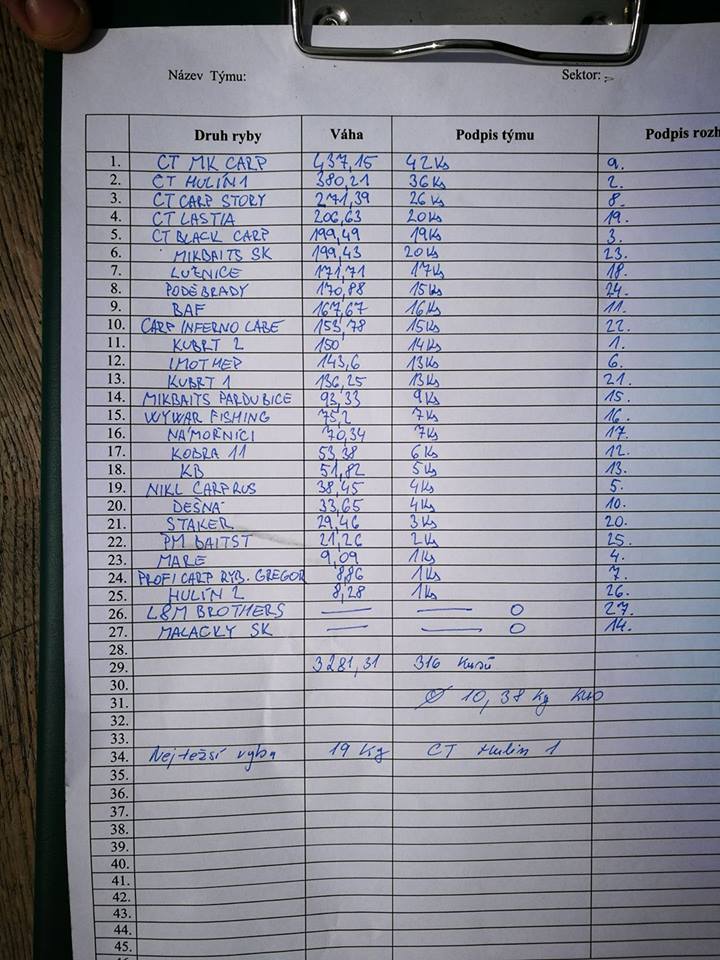 Název Týmu: Sektor:
Druh ryby Váha Podpis týmu Podpis rozh
1. CT MK CARP 437,15 42 Ks 9.
2. CT HULÍN 1 380,21 36 Ks 2.
3. CT CARP STORY 271,39 26 Ks 8.
4. CT LASTIA 206,63 20 Ks 19.
5. CT BLACK CARP 199,49 19 Ks 3.
6. MIKBAITS SK 199,43 20 Ks 23.
7. LUŽNICE 171,71 17 Ks 18.
8. PODĚBRADY 170,88 15 Ks 24.
9. BAF 167,67 16 Ks 11.
10. CARP INFERNO LABE 153,78 15 Ks 22.
11. KUBRT 2 150 14 Ks 1.
12. IMOTHEP 143,6 13 Ks 6.
13. KUBRT 1 136,25 13 Ks 21.
14. MIKBAITS PARDUBICE 93,33 9 Ks 15.
15. WYWAR FISHING 75,2 7 Ks 16.
16. NÁMOŘNÍCI 70,34 7 Ks 17.
17. KOBRA 11 53,38 6 Ks 12.
18. KB 51,82 5 Ks 13.
19. NIKL CARP RUS 38,45 4 Ks 5.
20. DEŠNÁ 33,65 4 Ks 10.
21. STAKER 29,46 3 Ks 20.
22. PM BAITST 21,26 2 Ks 25.
23. MARE 9,09 1 Ks 4.
24. PROFI CARP RYB. GREGOR 8,86 1 Ks 7.
25. HULÍN 2 8,28 1 Ks 26.
26. L&M BROTHERS — — 0 27.
27. MALACKY SK — — 0 14.
28.
29. 3281,31 316 Kusů
30.
31. Ø 10,38 Kg Kus
32.
33.
34. Nejtežší ryba 19 Kg CT Hulín 1
35.
36.
37.
38.
39.
40.
41.
42.
43.
44.
45.